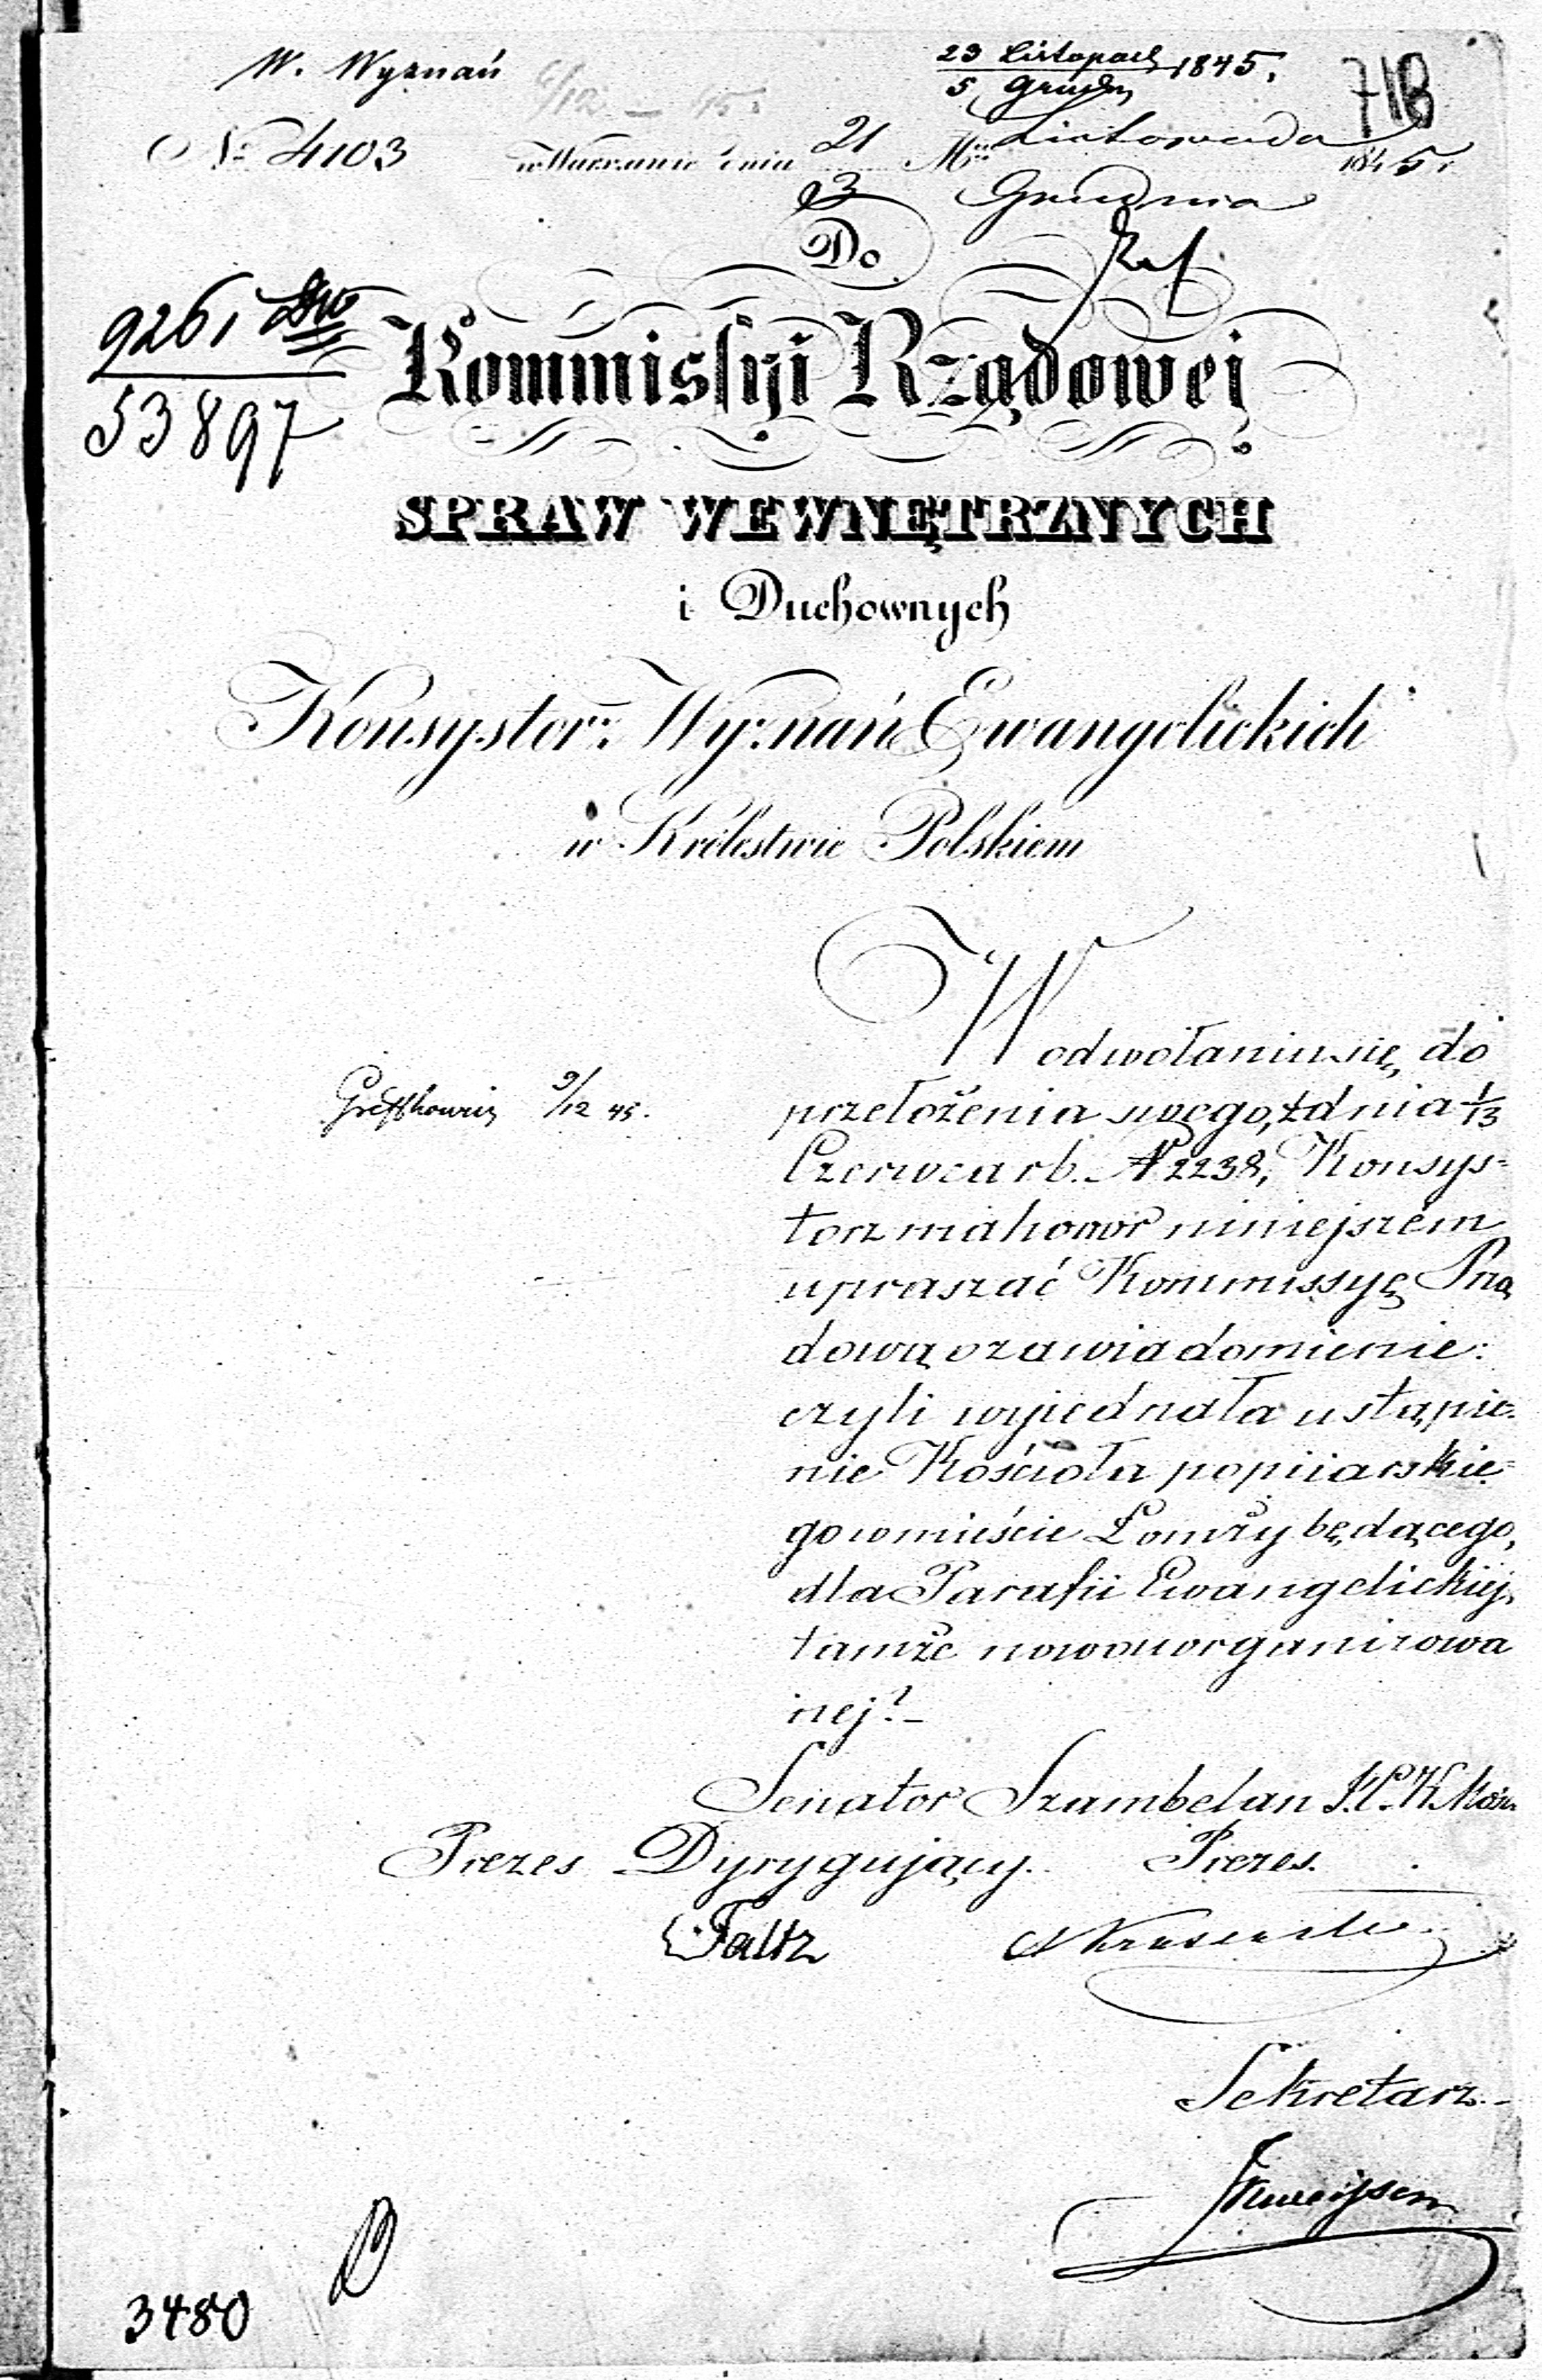 W. Wyznań
23 Listopada 1845.
5 Grudn
71B
6/12 – 45.
No 4103 w Warszawie dnia 21 Mca Listopada 1845 r.
3 Grudnia
Do
9261
53897
Kommissyi Rządowej
SPRAW WEWNĘTRZNYCH
i Duchownych
Konsystorz Wyznań Ewangelickich
w Królestwie Polskiem
W odwołaniu się do
9/12 45.
przełożenia swego, z dnia 1/13
Czerwca r b. N 2238, Konsys=
torz ma honor niniejszem
upraszać Kommissyę Rzą
dową o zawiadomienie:
czyli wyjednała ustąpie=
nie Kościoła popijarskie=
go w mieście Łomży będącego,
dla Parafii Ewangelickiej,
tamże nowo uorganizowa
nej? –
Senator Szambelan
Prezes Dyrygujący. Prezes.
Faltz
Sekretarz. –
3480